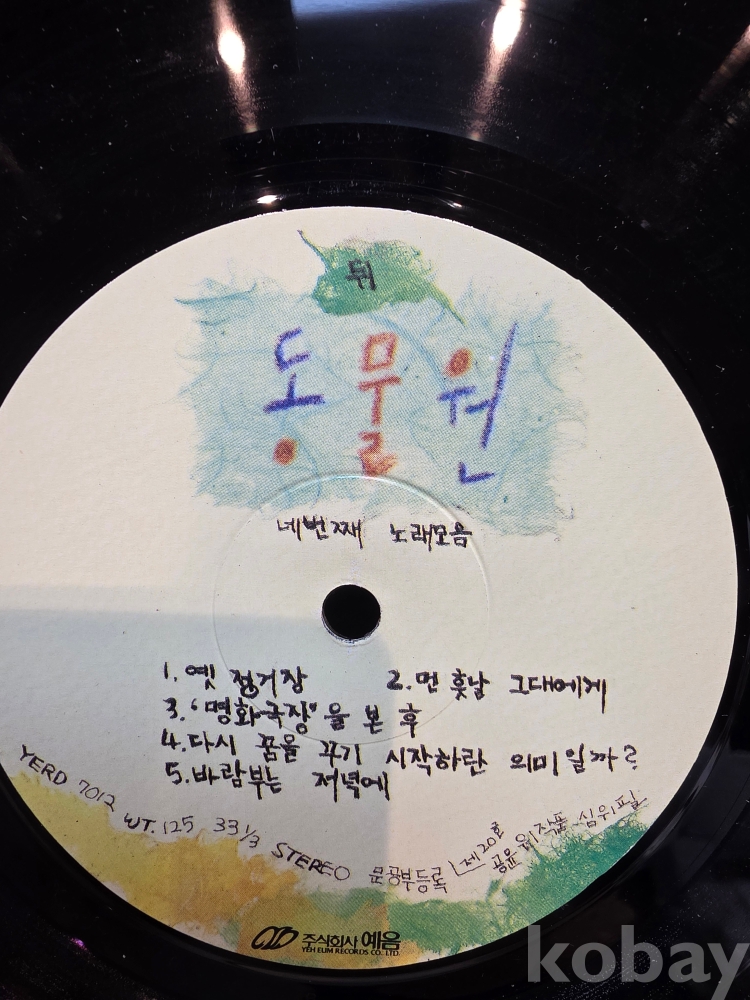 뒤
동물원
네번째 노래모음
1. 옛 정거장 2. 먼 훗날 그대에게
3. '명화극장'을 본 후
4. 다시 꿈을 꾸기 시작하란 의미일까?
5. 바람부는 저녁에
YERD 7012 WT. 125 33 1/3 STEREO 문공부등록 제20호 공윤위작품 심위필
주식회사 예음
YEH EUM RECORDS CO. LTD.
kobay